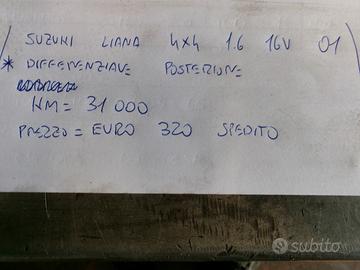 SUZUKI LIANA 4x4 1.6 16V 01
* DIFFERENZIALE POSTERIORE
KM = 31 000
PREZZO = EURO 320 SPEDITO
subito